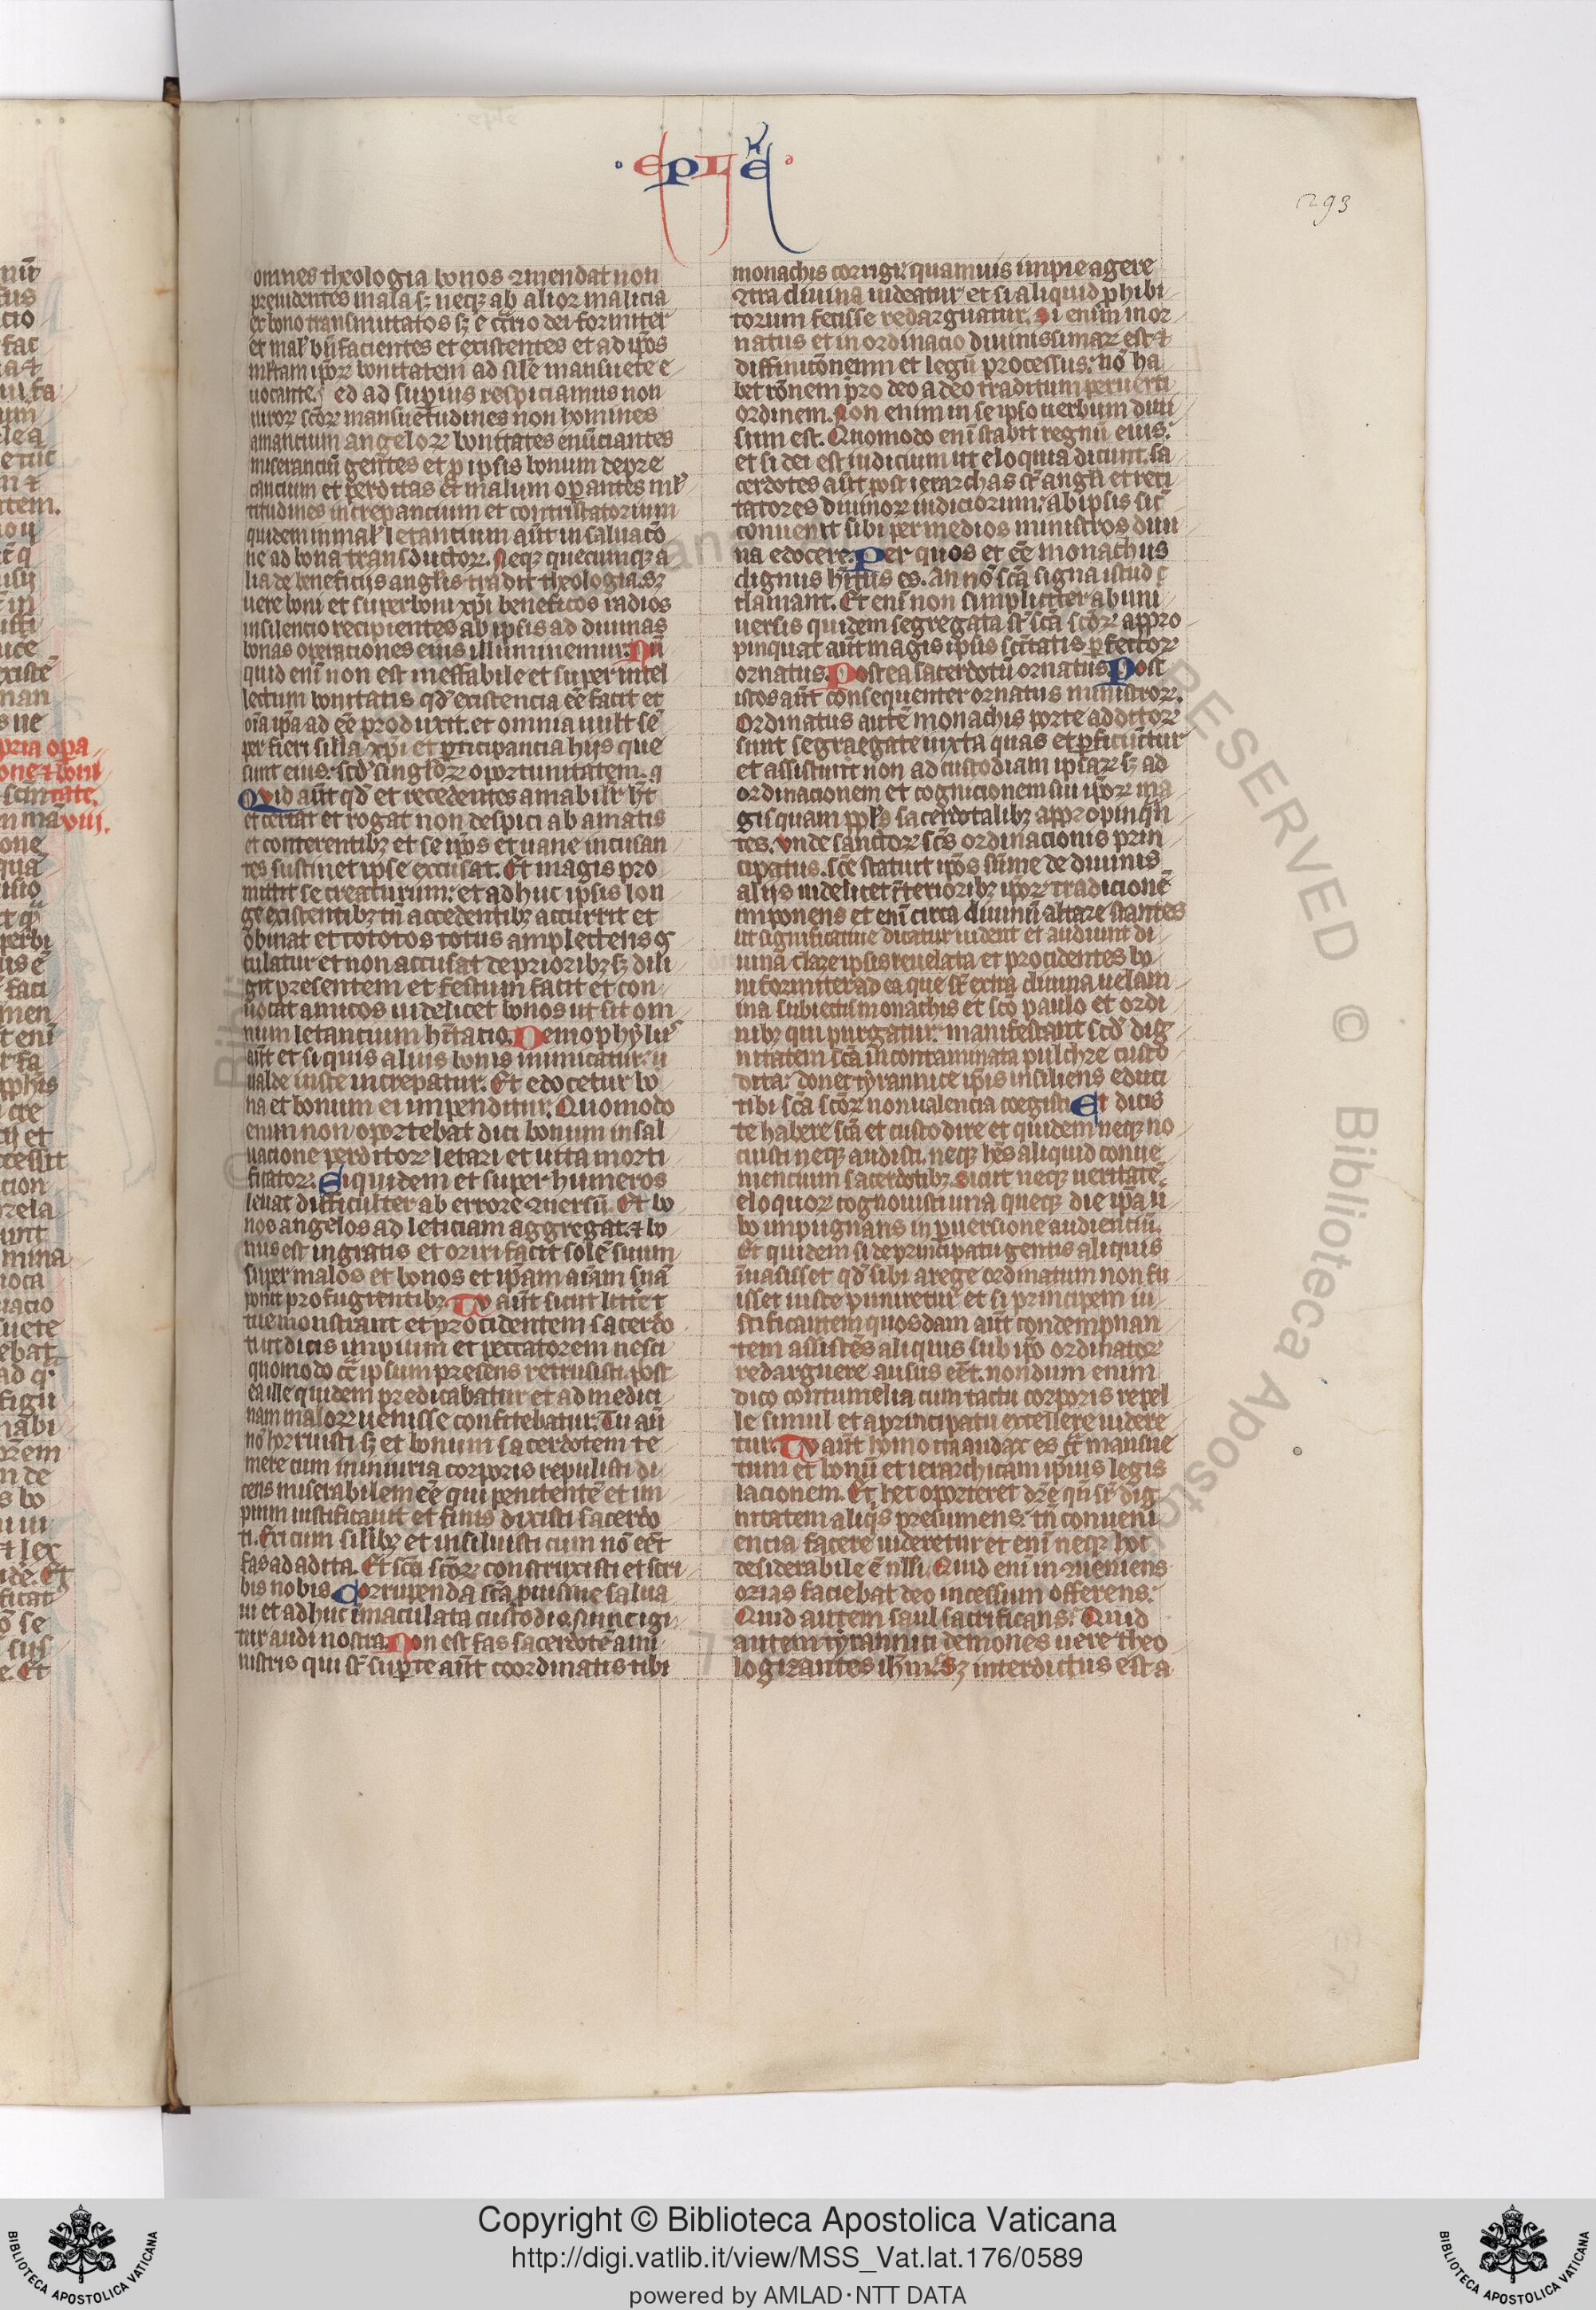 eplẽ
293
omnes theologia bonos ꝯmendat non
preuidentes mala sꝫ neqꝫ ab alioꝝ malicia
ex bono transmutatos sꝫ e ꝯt̃rio dei formiter
et mal' bñfacientes et existentes et ad ip̃os
multam ipoꝝ bonitatem ad sil'e mansuete e
uocante. sed ad supius respiciamus non
uiroꝝ sc̃oꝝ mansuetudines non homines
amancium angeloꝝ bonitates enũciantes
miseranciũ gentes et ꝓ ipsis bonum depre
cancium et perditas et malum oꝑantes ml'
titudines increpancium et contristatorium
quidem in mal' letantium aũt in saluacõ
ne ad bona transductoꝝ. Neqꝫ quecumqꝫ a
lia de beneficijs anglis tradit theologia. sꝫ
uere boni et superboni xp̃i beneficos radios
in silencio recipientes ab ipsis ad diuinas
bonas operationes eius illuminemur. Nũ
quid enĩ non est ineffabile et super intel
lectum bonitatis qd' existencia eẽ facit et
oĩa ip̃a ad eẽ produxit. et omnia uult se
per fieri silĩa xp̃i et ꝑticipancia hijs que
sunt eius. scd' singloꝝ oportunitatem. q
Quid aũt qd' et recedentes amabilr hʼt
et certat et rogat non despici ab amatis
et conterentibꝫ et se ip̃os et uane incusan
tes sustinet ipse excusat. Et magis pro
mittit se creaturum. et adhuc ipsis lon
ge existentibꝫ tñ accedentibꝫ accurrit et
obuiat et totos totus amplectens os
culatur et non accusat de prioribꝫ sꝫ dili
git presentem et festum facit et con
uocat amicos uidelicet bonos ut sit om
nium letancium habitacio. Demophylus
aũt et si quis alius bonis inimicatur.
ualde iuste increpatur. Et edocetur bo
na et bonum ei impenditur. Quomodo
enim non oportebat dici bonum in sal
uacione perditoꝝ letari et uita morti
ficatoꝝ. Siquidem et super humeros
leuat difficulter ab errore ꝯuersũ. Et bo
nos angelos ad leticiam aggregat. et bo
nus est ingratis et oriri facit solẽ suum
super malos et bonos et ip̃am aĩam suã
ponit pro fugientibꝫ. Tu aũt sicut littẽ t
tue monstrant et procidentem sacerdo
ti ut dicis impium et peccatorem nesci
quomodo cẽ ipsum presens retrusisti. post
ea ille quidem predicabatur et ad medici
nam maloꝝ uenisse confitebatur. Tu aũ
nõ horruisti sꝫ et bonum sacerdotem te
mere cum iniuria corporis repulisti di
cens miserabilem eẽ qui penitentẽ et im
pium iustificauit et finis dixisti sacerdo
ti. Exi cum silibꝫ et insiluisti cum nõ eẽt
fas ad adita. Et sc̃a sc̃oꝝ construxisti et scri
bis nobis Corrupenda sc̃a puisiue salua
ui et adhuc ĩmaculata custodio. nunc igi
tur audi nostra. Non est fas sacerdotẽ a mi
nistris qui sr̃ supra te aũt coordinatis tibi
monachis corrigi. quamuis impie agere
ꝯtra diuina uideatur et si aliquid ꝓhibi
torum fecisse redarguatur. Si enim inor
natus et inordinacio diuinissimaꝝ est et
diffinicõnemm et legũ processus. nõ ha
bet rõnem pro deo a deo traditum peruerti
ordinem. Non enim in se ipso uerbum diui
sum est. Quomodo enĩ stabit regnũ eius.
et si dei est iudicium ut eloquia dicunt. sa
cerdotes aũt post ierarchas sr̃ angli et reci
tatores diuinoꝝ iudiciorum. ab ipsis sic
conuenit sibi per medios ministros diui
na edocere. Per quos et eẽ monachus
dignus hĩtus es. An nõ sc̃a signa istud c
clamant. Et enĩ non simpliciter ab uni
uersis quidem segregata sr̃ sc̃a sc̃oꝝ appro
pinquat aũt magis ipsis sc̃itatis ꝑfectoꝝ
ornatus. Postea sacerdotũ ornatus. Post
istos aũt consequenter ornatus ministroꝝ.
Ordinatus autẽ monachis porte additoꝝ
sunt segraegate iuxta quas et ꝑficiũtur
et assistunt non ad custodiam ipsaꝝ sꝫ ad
ordinacionem et cognicionem sui ip̃oꝝ ma
gis quam ppl's sacerdotalibꝫ appropinqñ
tes. Vnde sanctoꝝ sc̃s ordinacionis prin
cipatus. sc̃e statuit ip̃os sũme de diuinis
alijs uidelicet ĩterioribꝫ ipoꝝ tradicionẽ
imponens et enĩ circa diuinũ altare stantes
ut significatiue dicatur uident et audiunt di
uina clare ipsis reuelata et procidentes bo
ni formiter ad ea que sr̃ extra diuina uelam
ina subiectis monachis et sc̃o paulo et ordi
nibꝫ qui purgatur. manifestant scd' dig
nitatem sc̃a incontaminata pulchre custo
dita. donec tyrannice ip̃is insiliens educi
tibi sc̃a sc̃oꝝ non ualencia coegisti. Et dicis
te habere sc̃a et custodire et quidem neqꝫ no
uisti neqꝫ audisti. neqꝫ hẽs aliquid conue
niencium sacerdotibꝫ. Sicut neqꝫ ueritatẽ
eloquioꝝ cognouisti una queqꝫ die ip̃a ũ
bo impugnans in ꝑuersione audienciũ.
Et quidem si de principatu gentis aliquis
ĩuasisset qd' sibi a rege ordinatum non fu
isset iuste puniretur et si principem iu
stificantem quosdam aũt condempnan
tem assistẽs aliquis sub ip̃o ordinatoꝝ
redarguere ausus eẽt. nondum enim
dico contumelia cum tactu corporis repel
le simul et a principatu excellere uidere
tur. Tu aũt homo ita audax es cẽ mansue
tum et bonũ et ierarchicam ip̃ius legis
lacionem. Et hec oporteret dr̃e qñ sr̃ dig
nitatem aliq̃s presumens. tñ conueni
encia facere uideretur et enĩ neqꝫ hoc
desiderabile ẽ ulli. Quid enĩ in ꝯueniens
ozias faciebat deo incessum offerens.
Quid autem saul sacrificans. Quid
autem tyrannici demones uere theo
logizantes ih̃m. Sꝫ interdictus est a
Copyright © Biblioteca Apostolica Vaticana
http://digi.vatlib.it/view/MSS_Vat.lat.176/0589
powered by AMLAD·NTT DATA